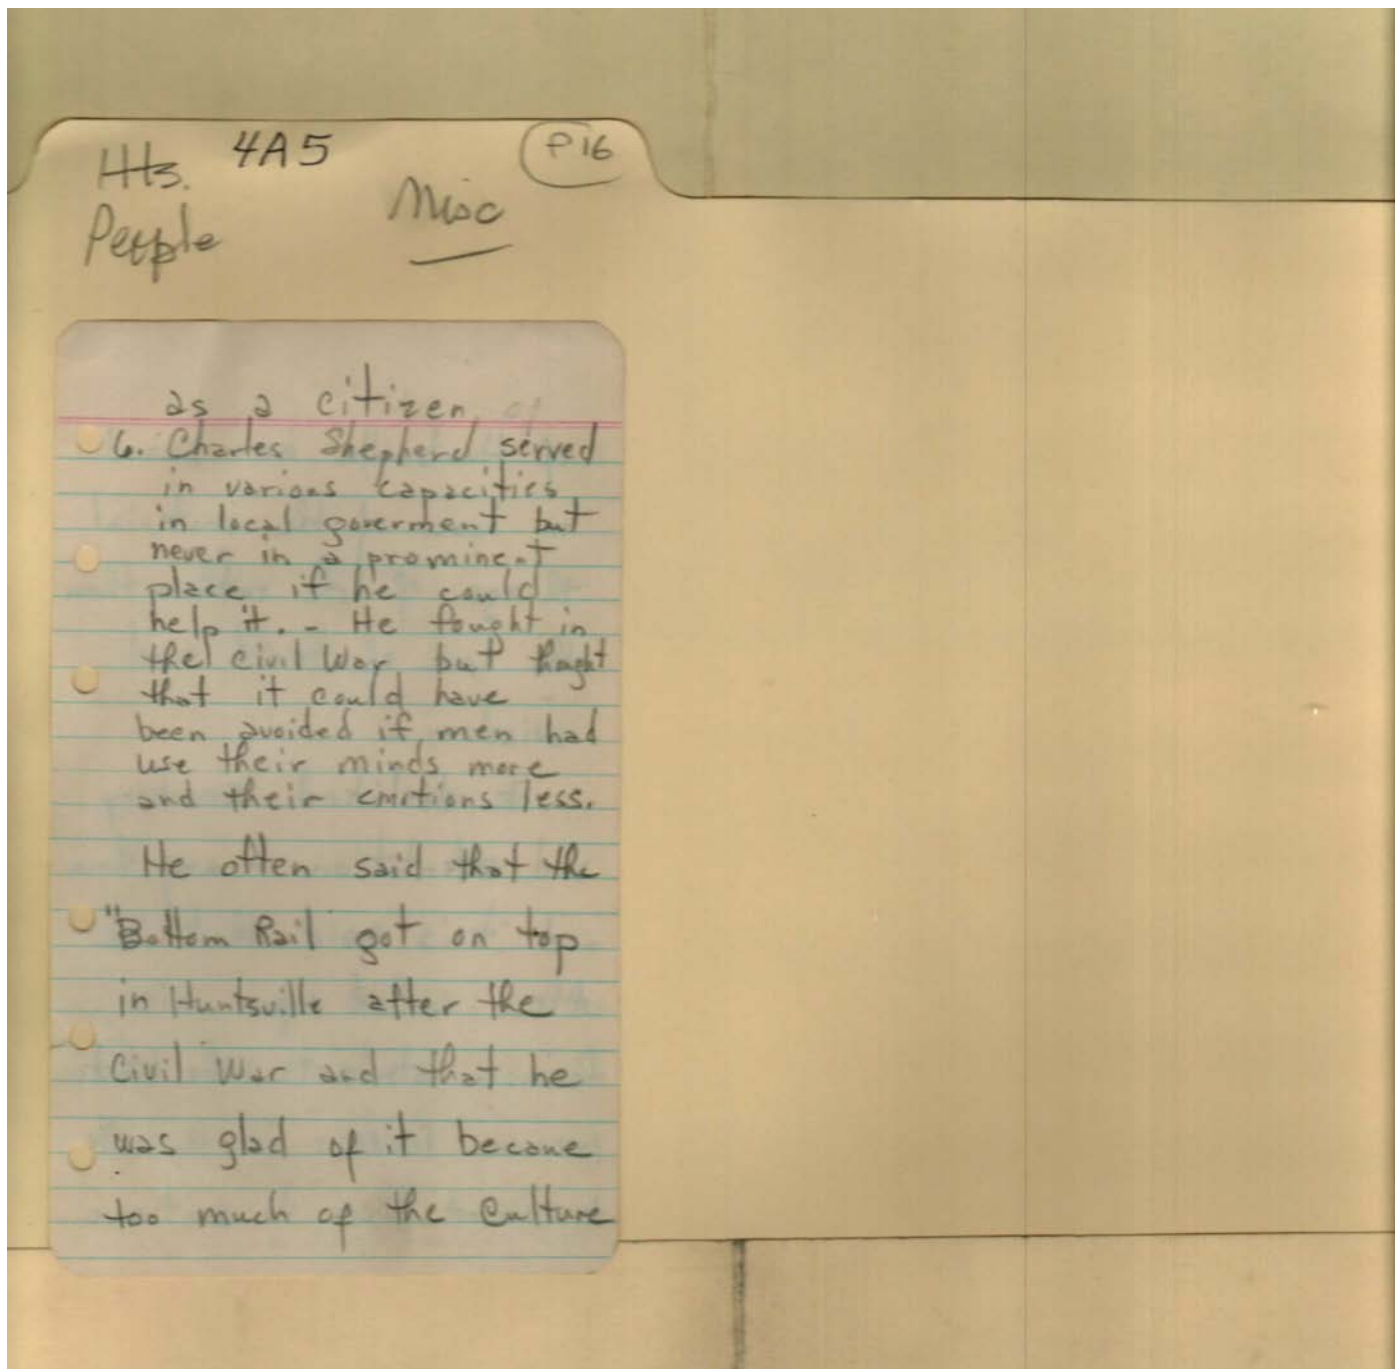 4A5
P16
Hts.
Misc
People
as a citizen
6. Charles Shepherd served
in various capacities
in local goverment but
never in a prominent
place if he could
help it. - He fought in
the Civil War but thought
that it could have
been avoided if men had
use their minds more
and their emotions less.
He often said that the
"Bottom Rail got on top
in Huntsville after the
Civil War and that he
was glad of it because
too much of the culture